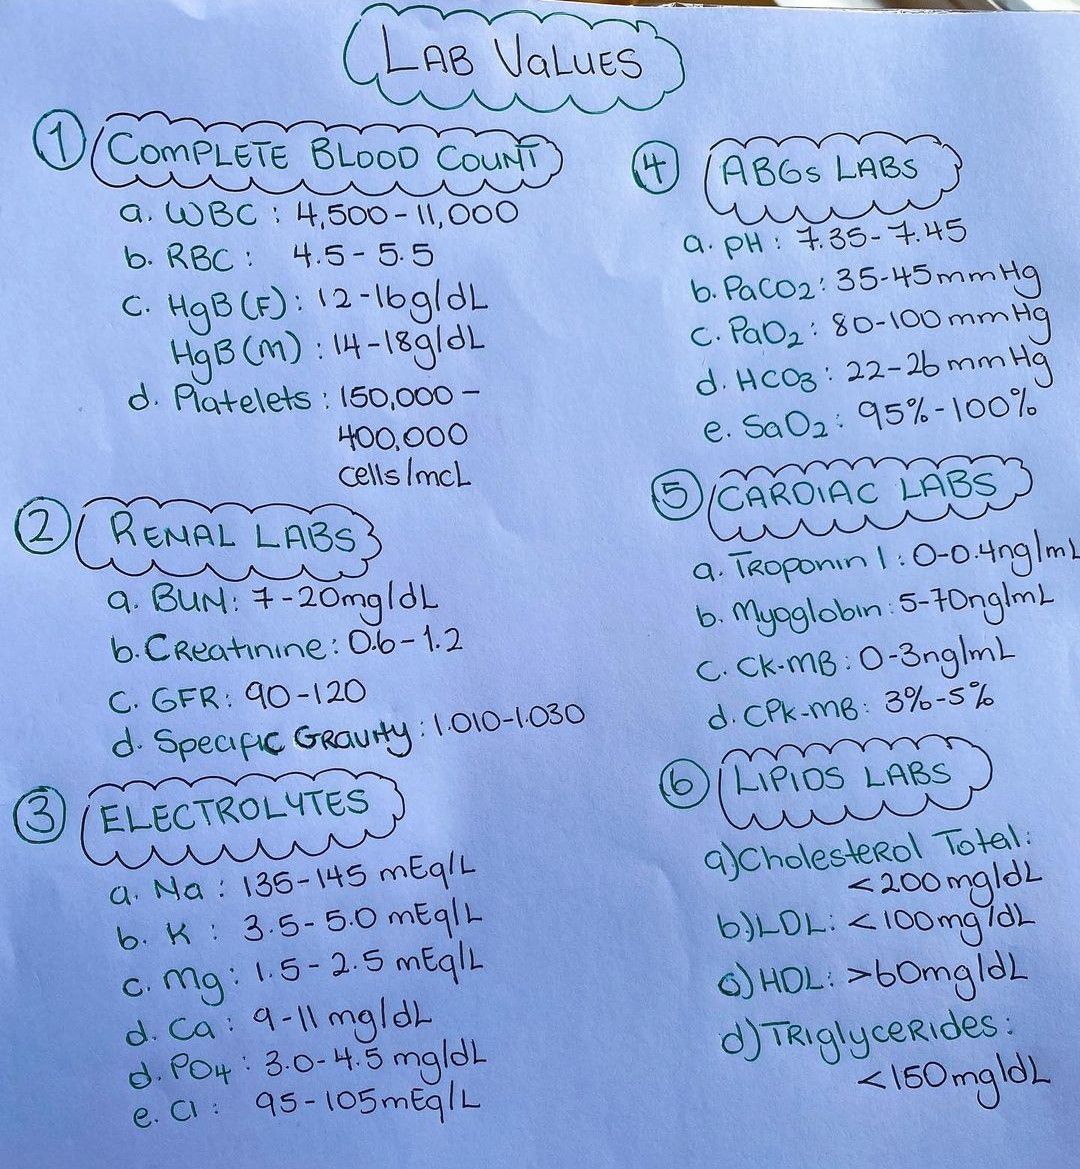 LAB VALUES
1 COMPLETE BLOOD COUNT
a. WBC : 4,500-11,000
b. RBC : 4.5-5.5
c. HgB (F) : 12-16g/dL
HgB (M) : 14-18g/dL
d. Platelets : 150,000 -
400,000
cells/mcL
2 RENAL LABS
a. BUN: 7-20mg/dL
b. Creatinine: 0.6-1.2
c. GFR: 90-120
d. Specific Gravity : 1.010-1.030
3 ELECTROLYTES
a. Na : 135-145 mEq/L
b. K : 3.5-5.0 mEq/L
c. Mg: 1.5-2.5 mEq/L
d. Ca : 9-11 mg/dL
d. PO4 : 3.0-4.5 mg/dL
e. Cl : 95-105mEq/L
4 ABGs LABS
a. pH : 7.35-7.45
b. PaCO2 : 35-45mmHg
c. PaO2 : 80-100 mmHg
d. HCO3 : 22-26 mmHg
e. SaO2 : 95%-100%
5 CARDIAC LABS
a. Troponin I : 0-0.4ng/mL
b. Myoglobin : 5-70ng/mL
c. CK-MB : 0-3ng/mL
d. CPK-MB : 3%-5%
6 LIPIDS LABS
a) Cholesterol Total:
<200mg/dL
b) LDL: <100mg/dL
c) HDL: >60mg/dL
d) Triglycerides:
<150mg/dL